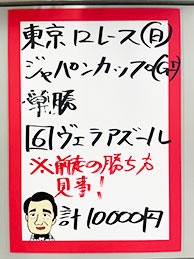 東京12レース(日)
ジャパンカップ(GⅠ)
単勝
6 ヴェラアズール
※前走の勝ち方
見事!
計10000円